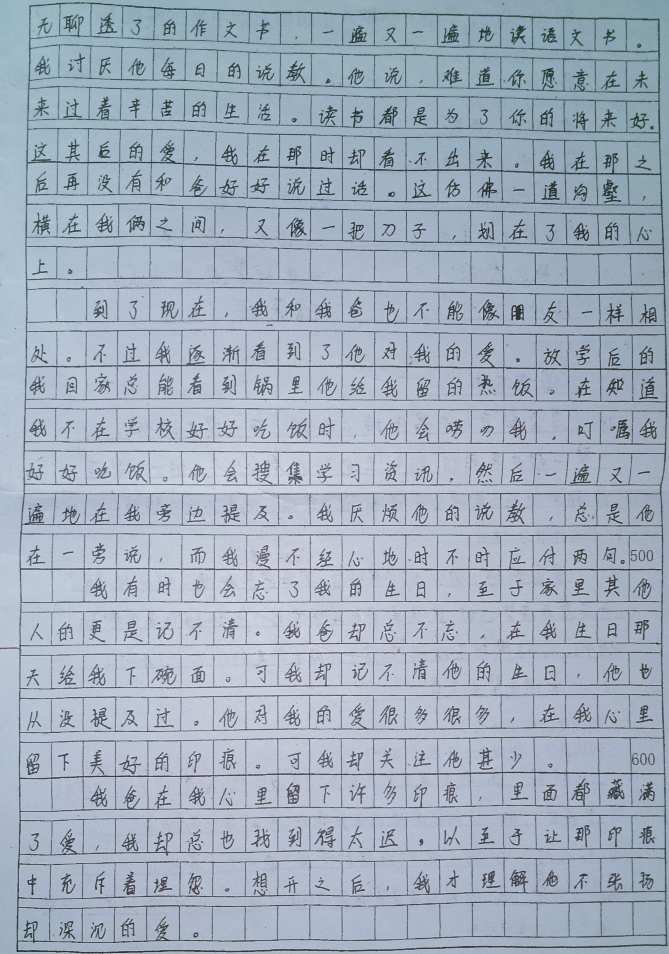 无聊透了的作文书，一遍又一遍地读语文书。
我讨厌他每日的说教。他说，难道你愿意在未
来过着辛苦的生活。读书都是为了你的将来好。
这其后的爱，我在那时却看不出来。我在那之
后再没有和爸好好说过话。这仿佛一道沟壑，
横在我俩之间，又像一把刀子，划在了我的心
上。
到了现在，我和我爸也不能像朋友一样相
处。不过我逐渐看到了他对我的爱。放学后的
我回家总能看到锅里他给我留的热饭。在知道
我不在学校好好吃饭时，他会唠叨我，叮嘱我
好好吃饭。他会搜集学习资讯，然后一遍又一
遍地在我旁边提及。我厌烦他的说教，总是他
在一旁说，而我漫不经心地时不时应付两句。500
我有时也会忘了我的生日，至于家里其他
人的更是记不清。我爸却总不忘，在我生日那
天给我下碗面。可我却记不清他的生日，他也
从没提及过。他对我的爱很多很多，在我心里
留下美好的印痕。可我却关注他甚少。600
我爸在我心里留下许多印痕，里面都藏满
了爱，我却总也找到得太迟。以至于让那印痕
中充斥着埋怨。想开之后，我才理解他不张扬
却深沉的爱。